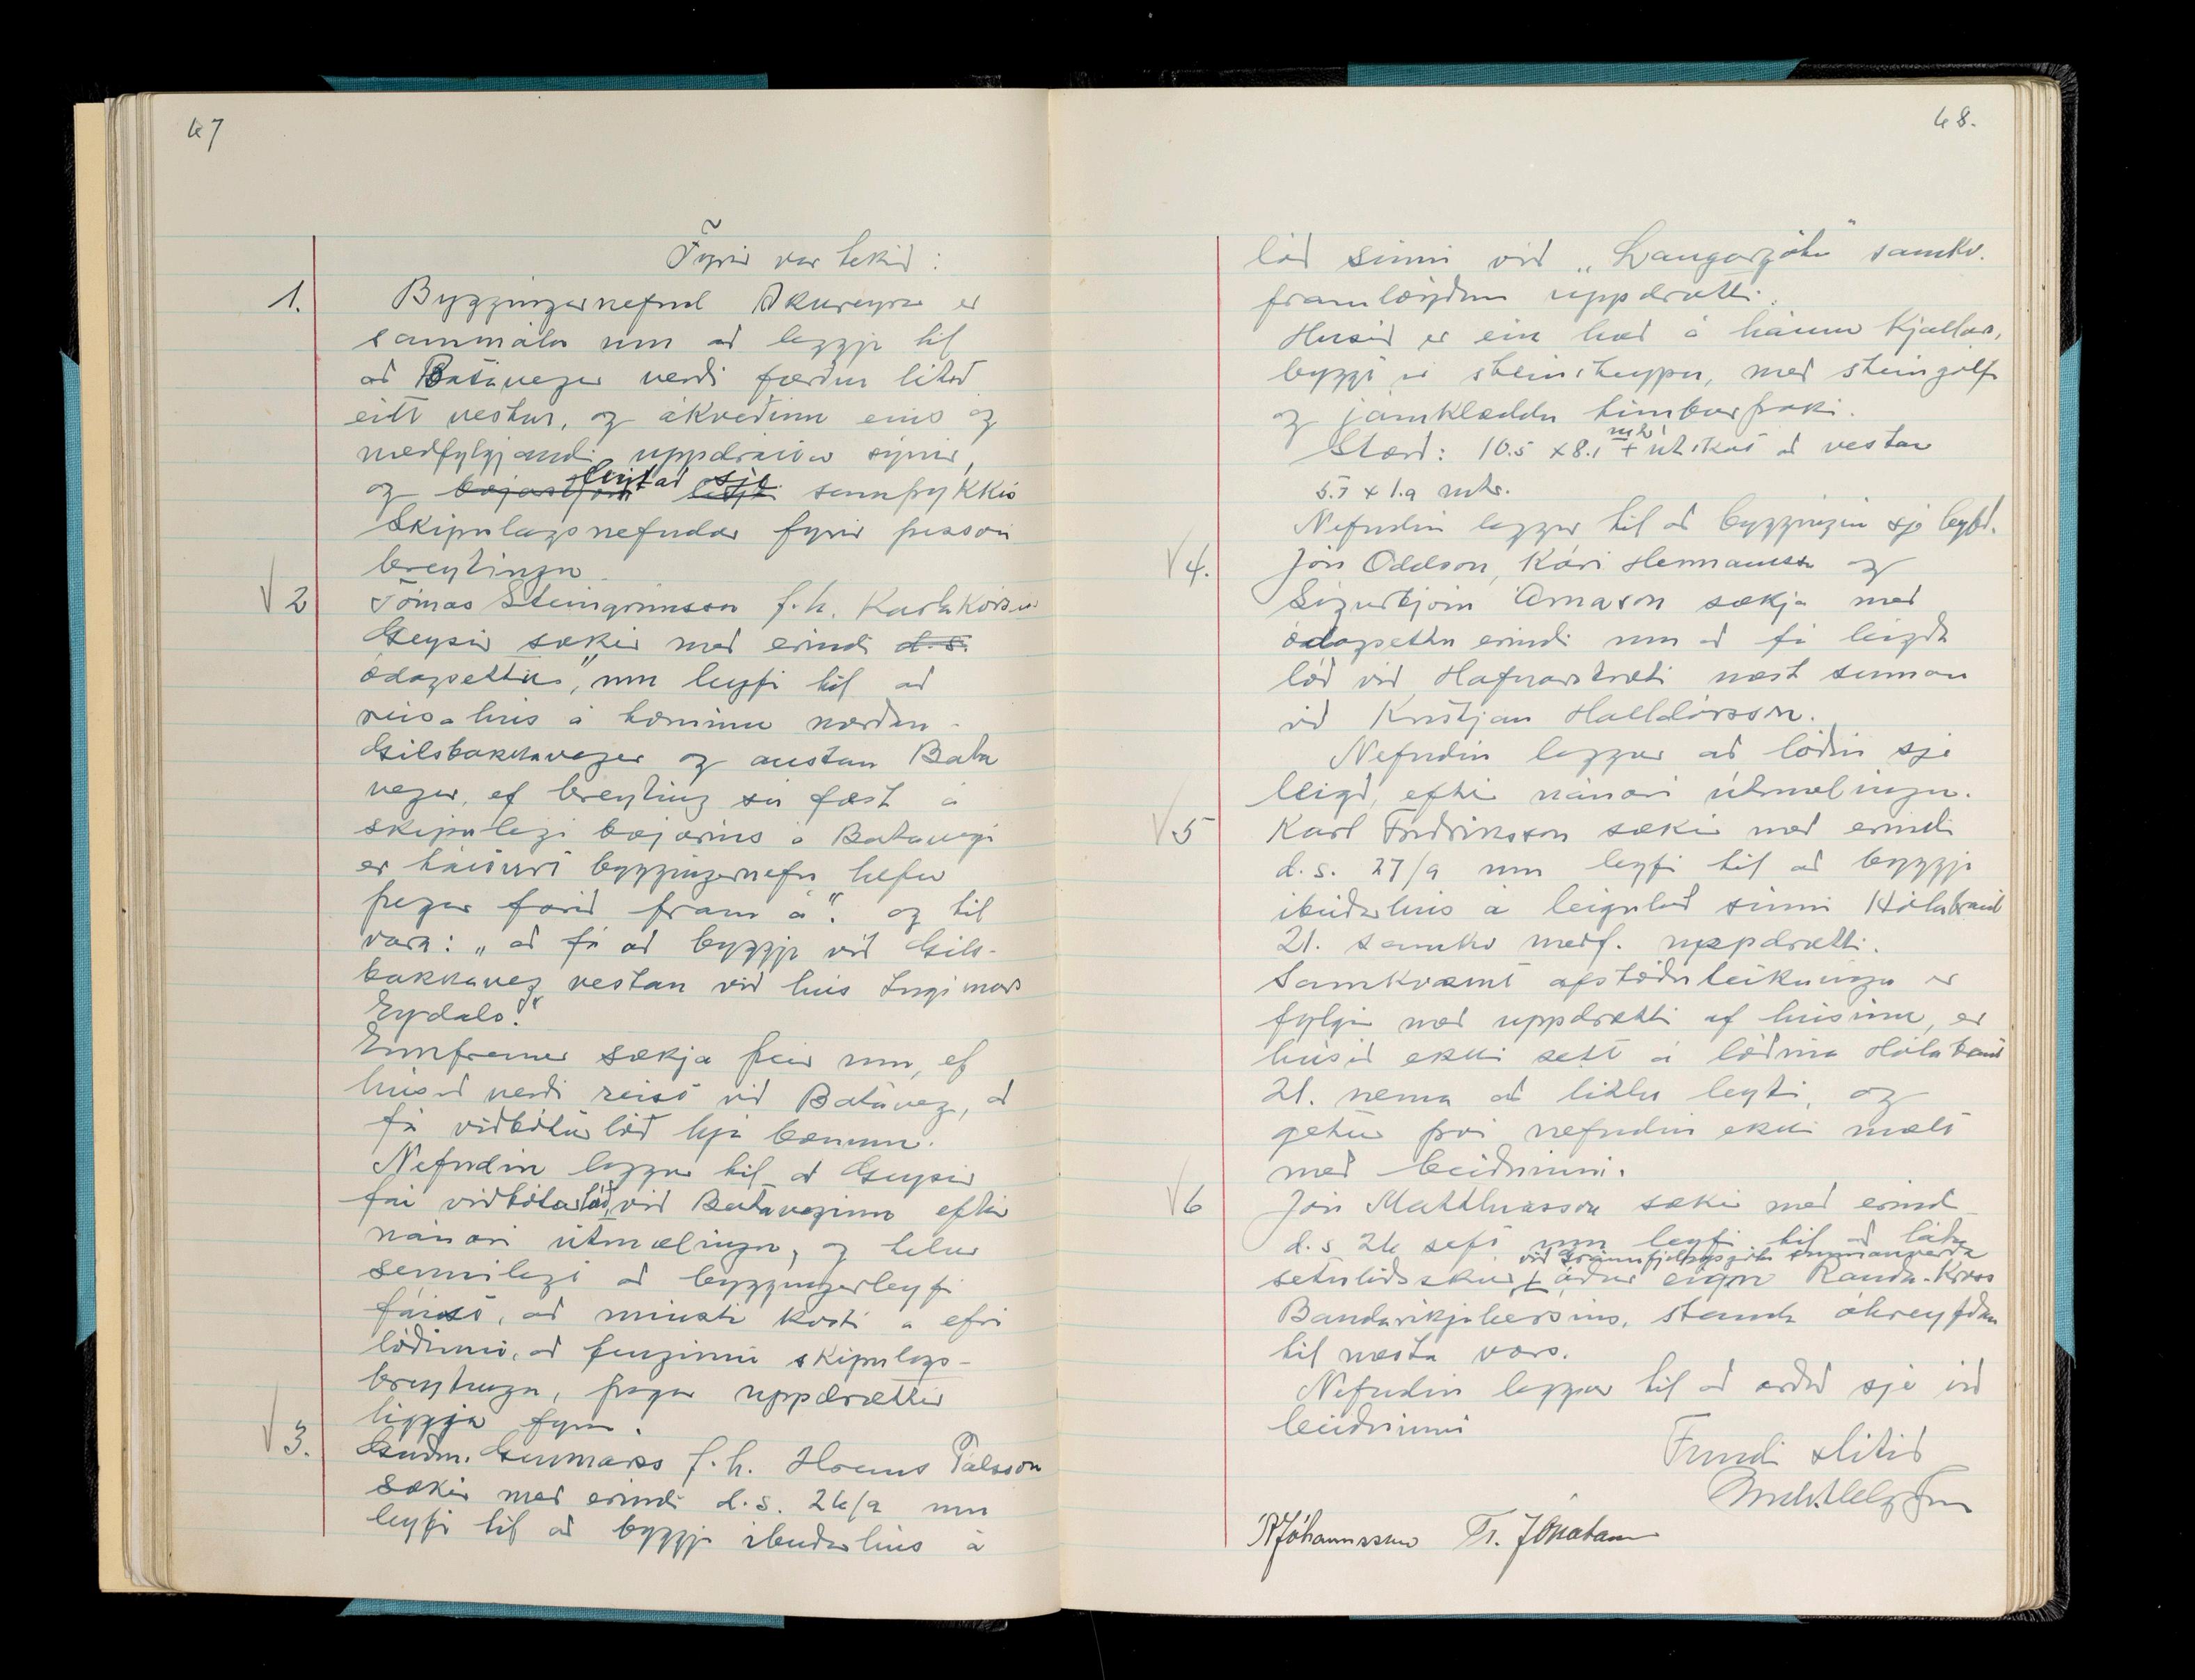 47
Fyrir var tekið:
1. Byggingarnefnd Akureyrar er
sammála um að leggja til
að Bátavegur verði færður lítið
eitt vestur, og ákveðinn eins og
meðfylgjandi uppdráttur sýnir,
og bæjarstjórn leitað sje samþykkis
Skipulagsnefndar fyrir þessari
breytingu.
V 2 Tómas Steingrímsson f.h. Karlakórsins
Geysir sækir með erindi d.s.
ódagsettu, "um leyfi til að
reisa hús á horninu norðan
Gilsbakkavegar og austan Báta
vegar, ef breyting sú fæst á
skipulagi bæjarins á Batavegi
er háttvirt byggingarnefn hefur
þegar farið fram á". og til
vara: "að fá að byggja við Gils-
bakkaveg vestan við hús Ingimars
Eydals."
Ennfremur sækja þeir um, ef
húsið verði reist við Bátaveg, að
fá viðbótarlóð hjá bænum.
Nefndin leggur til að Geysir
fái viðbótarlóð við Bátaveginn eftir
nánari útmælingu, og telur
sennilegt að byggingarleyfi
fáist, að minsti kosti á efri
lóðinni, að fenginni skipulags-
breytingu, þegar uppdrættir
liggja fyrir.
V 3. Guðm. Gunnarss f.h. Hreins Pálsson
sækir með erindi d.s. 24/9 um
leyfi til að byggja íbúðarhús á
48.
lóð sinni við "Laugargötu" samkv.
framlögðum uppdrætti.
Húsið er ein hæð á háum kjallara,
byggt úr steinsteypu, með steingólfi
og járnklæddu timburþaki.
Stærð: 10.5 x 8.1 mtr + útskot að vestan
5.7 x 1.9 mtr.
Nefndin leggur til að byggingin sje leyfð.
V 4. Jón Oddson, Kári Hermannsson og
Sigurbjörn Árnason sækja með
ódagsettu erindi um að fá leigða
lóð við Hafnarstræti næst sunnan
við Kristján Halldórsson.
Nefndin leggur að lóðin sje
leigð, eftir nánari útmælingu.
V 5 Karl Friðriksson sækir með erindi
d.s. 27/9 um leyfi til að byggja
íbúðarhús á leigulóð sinni Hólabraut
21. samkv meðf. uppdrætti.
Samkvæmt afstöðuteikningu er
fylgir með uppdrætti af húsinu, er
húsið ekki sett á lóðina Hólabraut
21. nema að litlu leyti, og
getur því nefndin ekki mælt
með beiðninni.
V 6 Jón Matthíasson sækir með erindi
d.s 24 sept um leyfi til að láta
við Grænufjelagsgötu sunnanverða
setuliðsskúr, áður eign Rauða-Kross
Bandaríkjahersins, standa óhreyfðan
til næsta vors.
Nefndin leggur til að orðið sje við
beiðninni
Fundi slitið
RJóhannsson Tr. Jónatanss